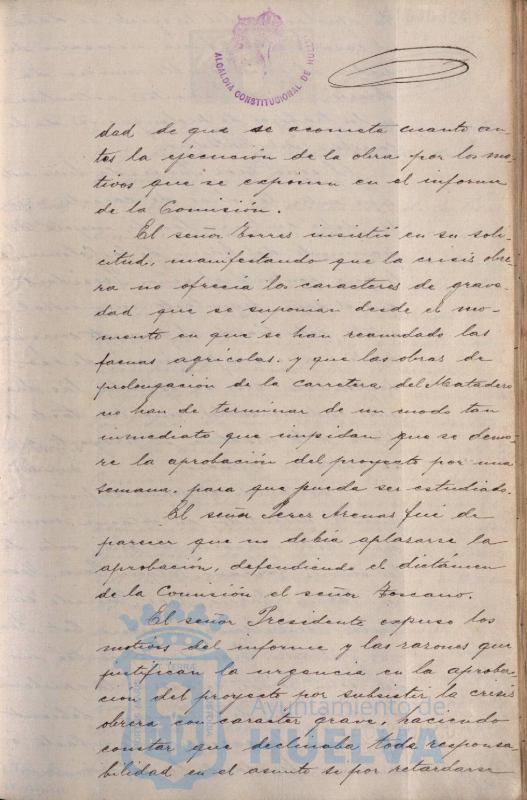 ALCALDIA CONSTITUCIONAL DE HUELVA
dad de que se acometa cuanto an-
tes la ejecución de la obra por los mo-
tivos que se exponen en el informe
de la Comisión.
El señor Torres insistió en su soli-
citud, manifestando que la crisis obre-
ra no ofrecia los caracteres de grave-
dad que se suponian desde el mo-
mento en que se han reanudado las
faenas agricolas, y que las obras de
prolongación de la carretera del Matadero
no han de terminar de un modo tan
inmediato que impidan que se demo-
re la aprobación del proyecto por una
semana, para que pueda ser estudiado.
El señor Perez Arenas fué de
parecer que no debia aplazarse la
aprobación, defendiendo el dictámen
de la Comisión el señor Toscano.
El señor Presidente expuso los
motivos del informe y las razones que
justifican la urgencia en la aproba-
ción del proyecto por subsistir la crisis
obrera con caracter grave, haciendo
constar que declinaba toda responsa-
bilidad en el asunto si por retardarse
Ayuntamiento de
HUELVA